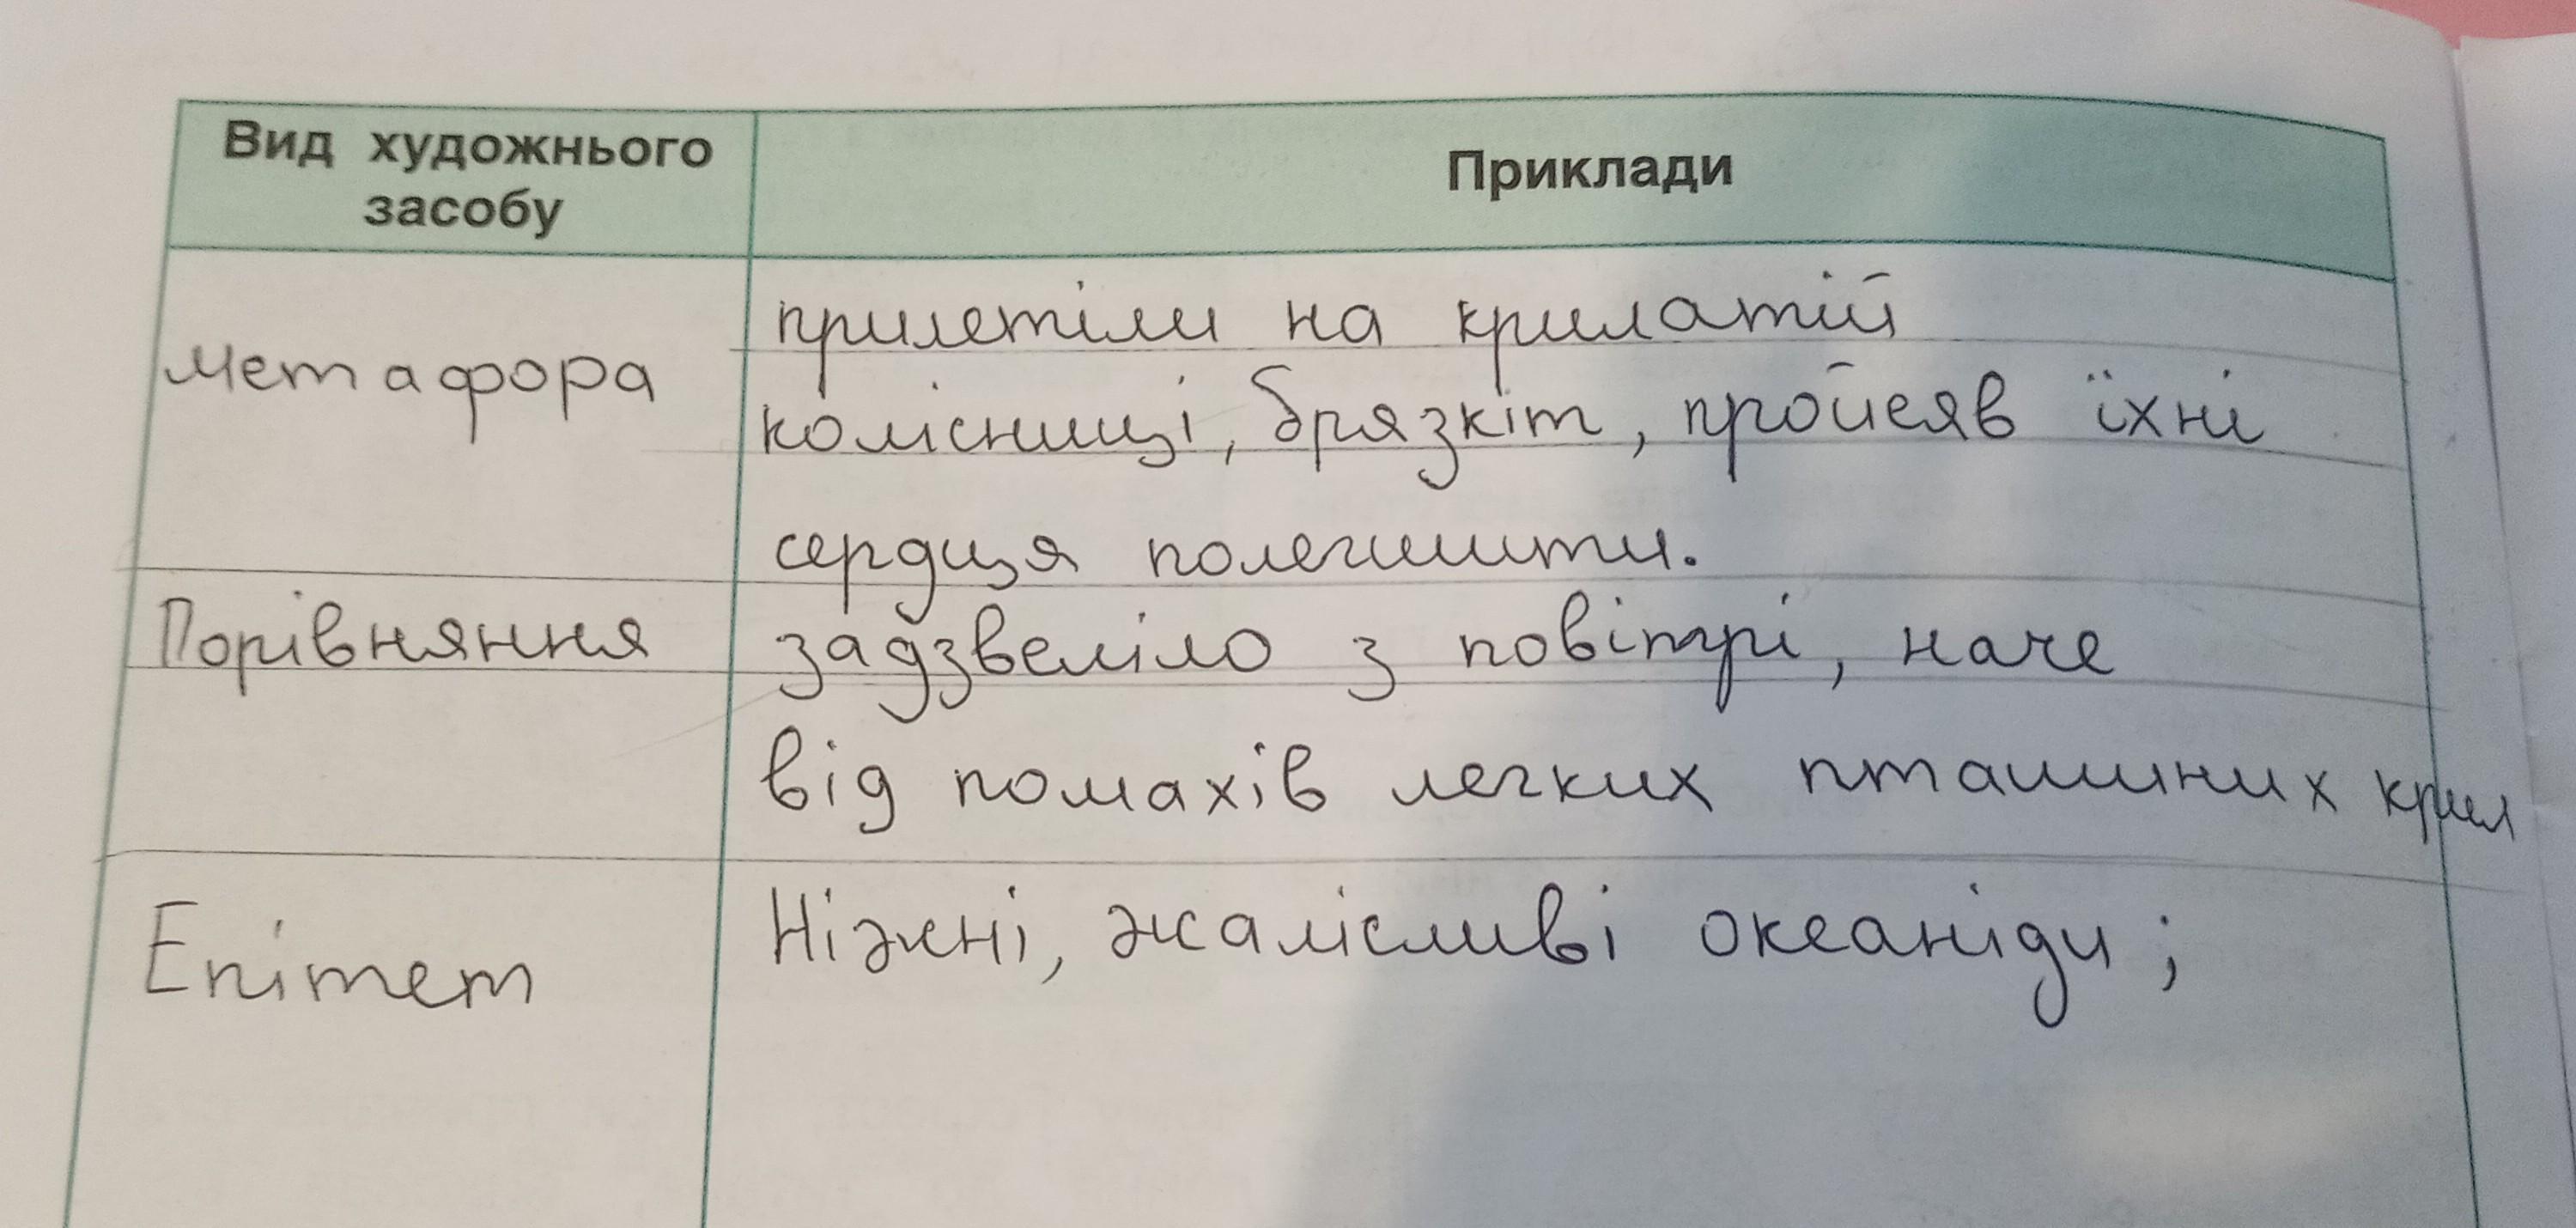 Вид художнього засобу
Приклади
Метафора
прилетіли на крилатій
колісниці, брязкіт, пройняв їхні
сердця полегшити.
Порівняння
задзвеліло з повітрі, наче
від помахів легких пташиних крил
Епітет
Ніжні, жалісливі океаніди;